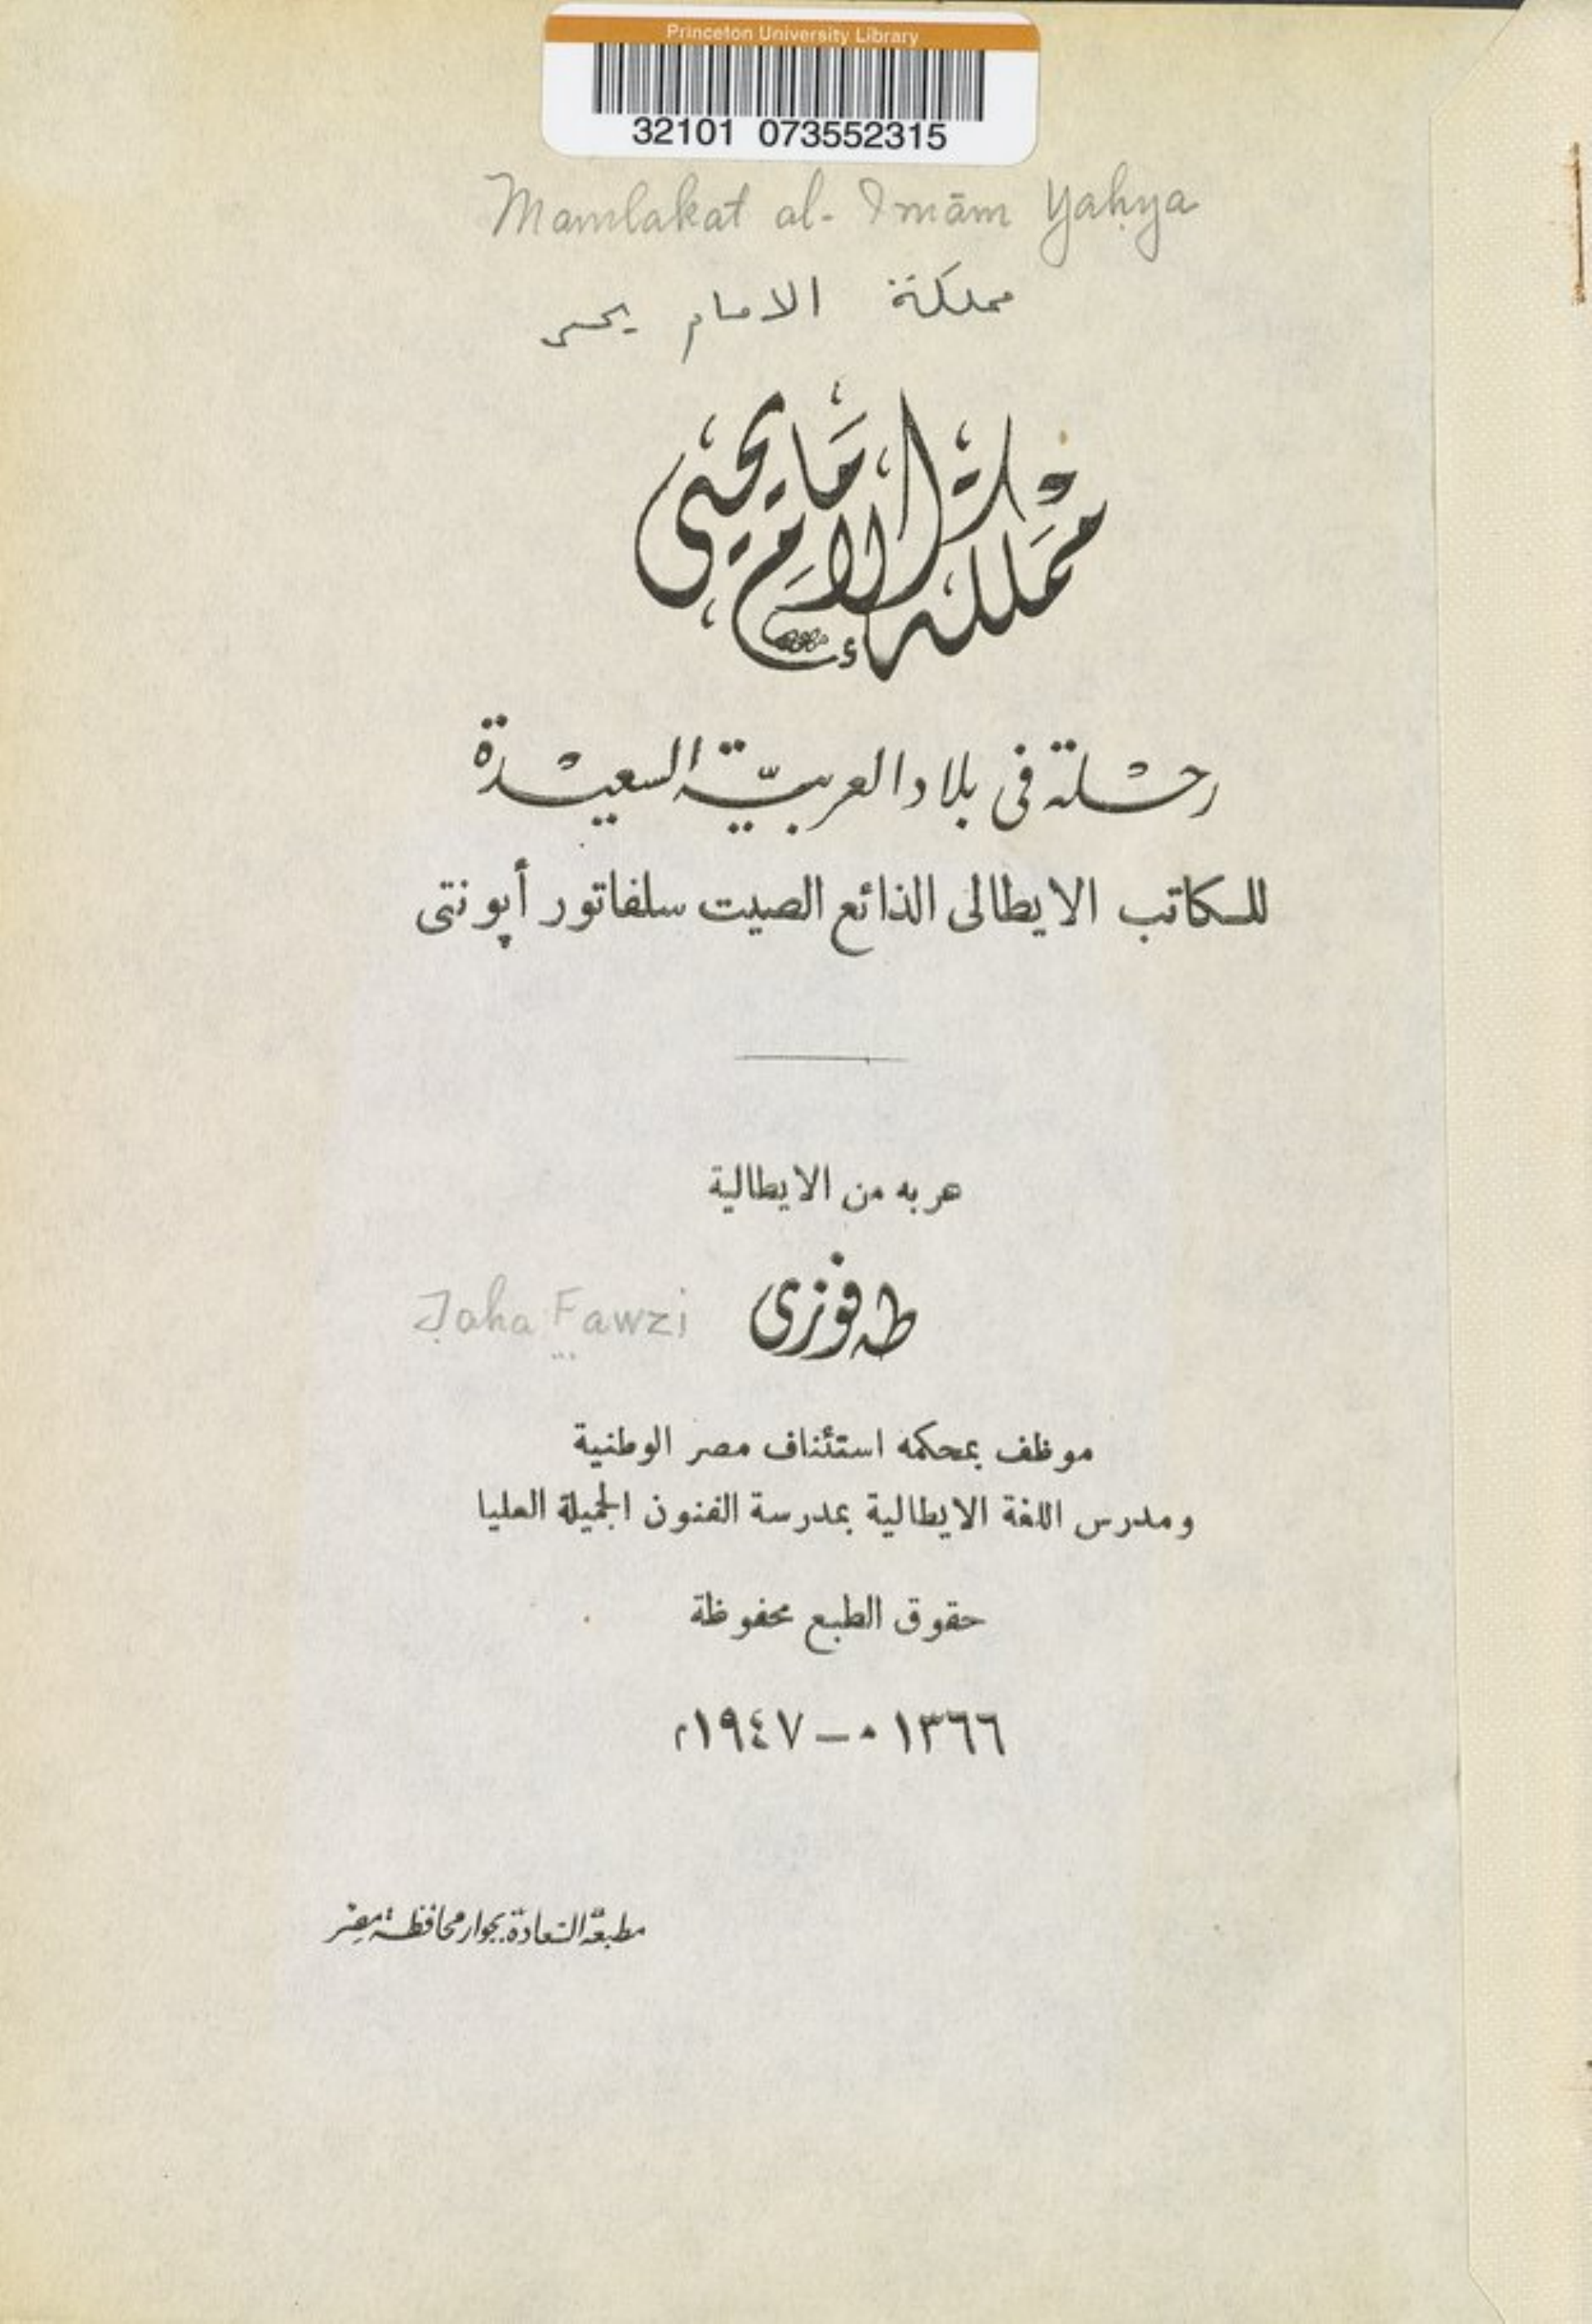 Princeton University Library
32101 073552315
Mamlakat al-Imām Yaḥya
مملكة الامام يحيى
مملكة الإمام يحيى
رحلة فى بلاد العربية السعيدة
للكاتب الايطالى الذائع الصيت سلفاتور أپونتى
عربه من الايطالية
طه فوزى
Ṭaha Fawzi
موظف بمحكمه استئناف مصر الوطنية
ومدرس اللغة الايطالية بمدرسة الفنون الجميلة العليا
حقوق الطبع محفوظة
١٣٦٦ ه – ١٩٤٧ م
مطبعة السعادة بجوار محافظة مصر